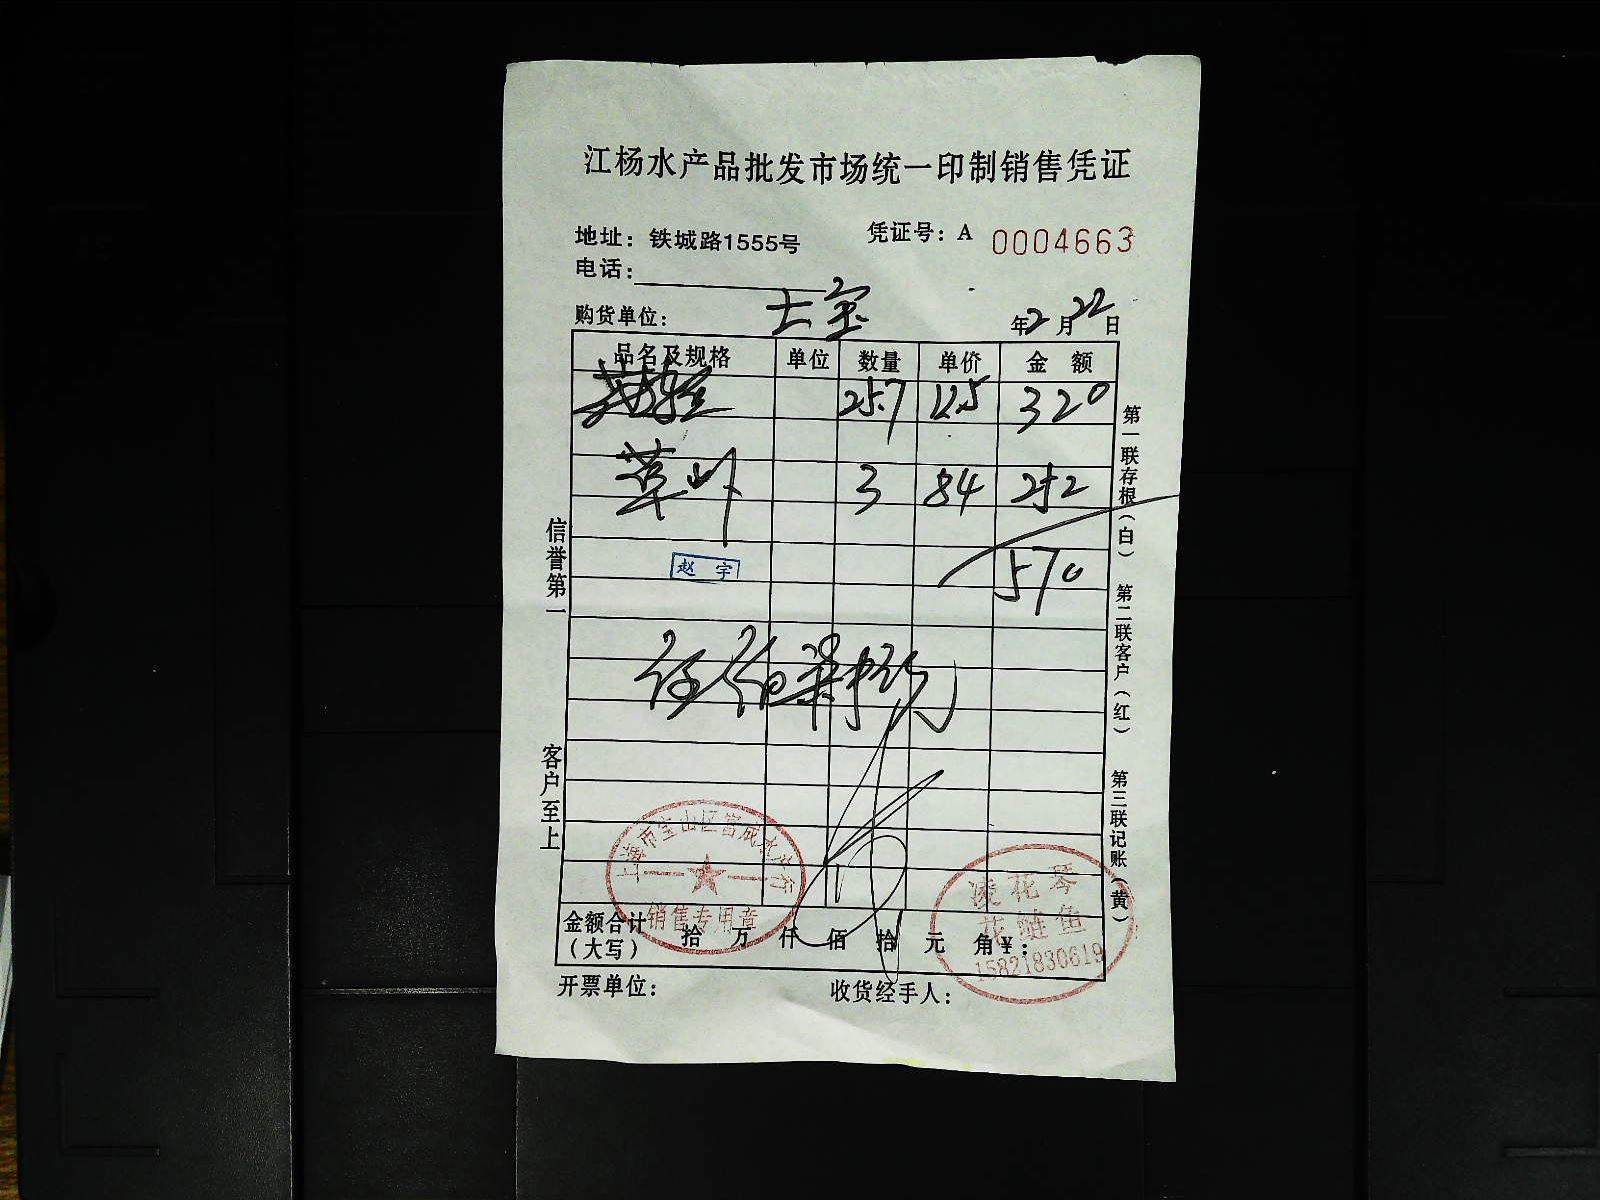 江杨水产品批发市场统一印制销售凭证
地址：铁城路1555号
凭证号：A 0004663
电话：
购货单位：
年2月22日
品名及规格 单位 数量 单价 金额
25.7 12.5 320
草 3 84 252
570
赵宇
信誉第一
客户至上
第一联存根（白）
第二联客户（红）
第三联记账（黄）
上海市宝山区富成水产行
销售专用章
凌花琴
花鲢鱼
15821830619
金额合计（大写） 拾 万 仟 佰 拾 元 角 ¥：
开票单位：
收货经手人：